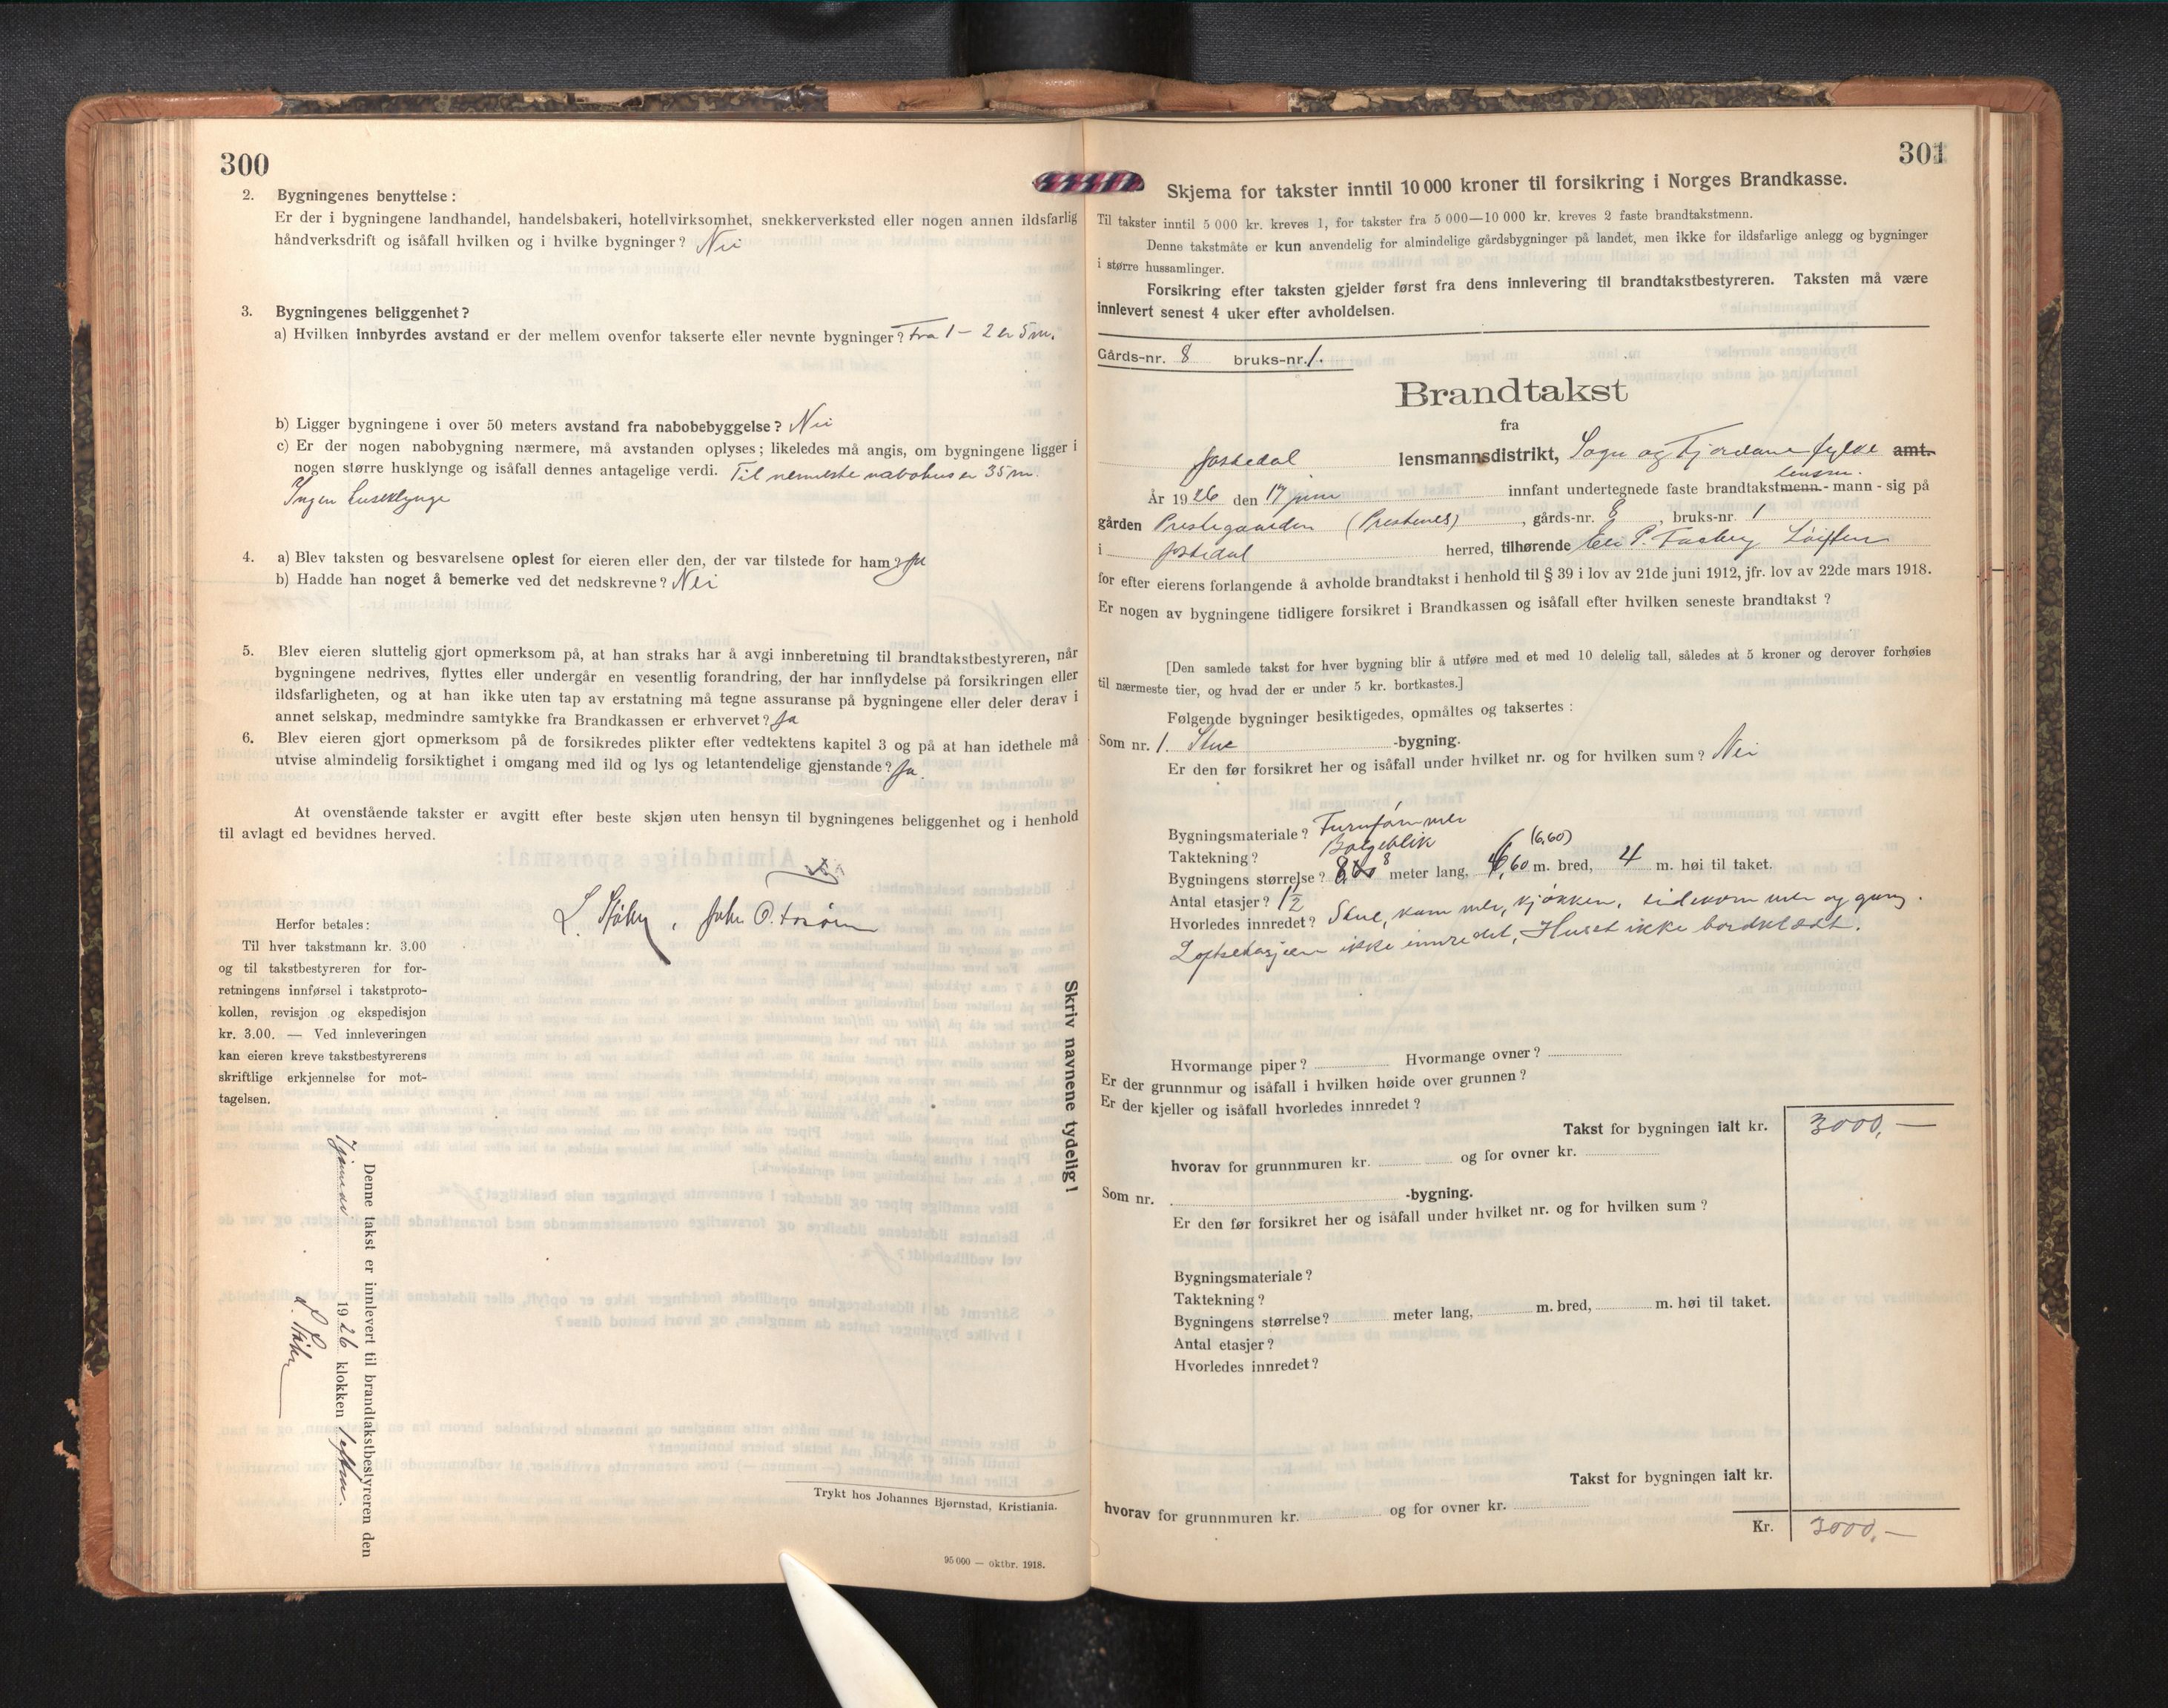 300
2. Bygningenes benyttelse:
Er der i bygningene landhandel, handelsbakeri, hotellvirksomhet, snekkerverksted eller nogen annen ildsfarlig
håndverksdrift og isåfall hvilken og i hvilke bygninger? Nei
3. Bygningenes beliggenhet?
a) Hvilken innbyrdes avstand er der mellem ovenfor takserte eller nevnte bygninger? Fra 1 - 2 er 5 m.
b) Ligger bygningene i over 50 meters avstand fra nabobebyggelse? Nei
c) Er der nogen nabobygning nærmere, må avstanden oplyses; likeledes må angis, om bygningene ligger i
nogen større husklynge og isåfall dennes antagelige verdi. Til nærmeste nabohus er 35 m.
Ingen husklynge
4. a) Blev taksten og besvarelsene oplest for eieren eller den, der var tilstede for ham? Ja
b) Hadde han noget å bemerke ved det nedskrevne? Nei
5. Blev eieren sluttelig gjort opmerksom på, at han straks har å avgi innberetning til brandtakstbestyreren, når
bygningene nedrives, flyttes eller undergår en vesentlig forandring, der har innflydelse på forsikringen eller
ildsfarligheten, og at han ikke uten tap av erstatning må tegne assuranse på bygningene eller deler derav i
annet selskap, medmindre samtykke fra Brandkassen er erhvervet? Ja
6. Blev eieren gjort opmerksom på de forsikredes plikter efter vedtektens kapitel 3 og på at han idethele må
utvise almindelig forsiktighet i omgang med ild og lys og letantendelige gjenstande? Ja.
At ovenstående takster er avgitt efter beste skjøn uten hensyn til bygningenes beliggenhet og i henhold
til avlagt ed bevidnes herved.
Herfor betales:
Til hver takstmann kr. 3.00
og til takstbestyreren for for-
retningens innførsel i takstproto-
kollen, revisjon og ekspedisjon
kr. 3.00. — Ved innleveringen
kan eieren kreve takstbestyrerens
skriftlige erkjennelse for mot-
tagelsen.
Skriv navnene tydelig!
Denne takst er innlevert til brandtakstbestyreren den
1926 klokken
Trykt hos Johannes Bjørnstad, Kristiania.
95 000 — oktbr. 1918.
301
Skjema for takster inntil 10 000 kroner til forsikring i Norges Brandkasse.
Til takster inntil 5 000 kr. kreves 1, for takster fra 5 000—10 000 kr. kreves 2 faste brandtakstmenn.
Denne takstmåte er kun anvendelig for almindelige gårdsbygninger på landet, men ikke for ildsfarlige anlegg og bygninger
i større hussamlinger.
Forsikring efter taksten gjelder først fra dens innlevering til brandtakstbestyreren. Taksten må være
innlevert senest 4 uker efter avholdelsen.
Gårds-nr. 8 bruks-nr. 1.
Brandtakst
fra
Jostedal lensmannsdistrikt, Sogn og Fjordane fylke amt.
lensm.
År 1926 den 17 juni innfant undertegnede faste brandtakstmenn - mann - sig på
gården Prestegaarden (Prestenes), gårds-nr. 8, bruks-nr. 1
i Jostedal herred, tilhørende P.
for efter eierens forlangende å avholde brandtakst i henhold til § 39 i lov av 21de juni 1912, jfr. lov av 22de mars 1918.
Er nogen av bygningene tidligere forsikret i Brandkassen og isåfall efter hvilken seneste brandtakst?
[Den samlede takst for hver bygning blir å utføre med et med 10 delelig tall, således at 5 kroner og derover forhøies
til nærmeste tier, og hvad der er under 5 kr. bortkastes.]
Følgende bygninger besiktigedes, opmåltes og taksertes:
Som nr. 1. Stue -bygning.
Er den før forsikret her og isåfall under hvilket nr. og for hvilken sum? Nei
Bygningsmateriale? Furutømmer
Taktekning? Bølgeblik (6,60)
Bygningens størrelse? 8 meter lang, 6,60 m. bred, 4 m. høi til taket.
Antal etasjer? 1½
Hvorledes innredet? Stue, kammer, kjøkken, sideværelse og gang.
Loftsetasjen ikke innredet, Huset ikke bordklædt.
Hvormange piper? Hvormange ovner?
Er der grunnmur og isåfall i hvilken høide over grunnen?
Er der kjeller og isåfall hvorledes innredet?
Takst for bygningen ialt kr. 3000,—
hvorav for grunnmuren kr. og for ovner kr.
Som nr. -bygning.
Er den før forsikret her og isåfall under hvilket nr. og for hvilken sum?
Bygningsmateriale?
Taktekning?
Bygningens størrelse? meter lang, m. bred, m. høi til taket.
Antal etasjer?
Hvorledes innredet?
Takst for bygningen ialt kr.
hvorav for grunnmuren kr. og for ovner kr.
Kr. 3000,—